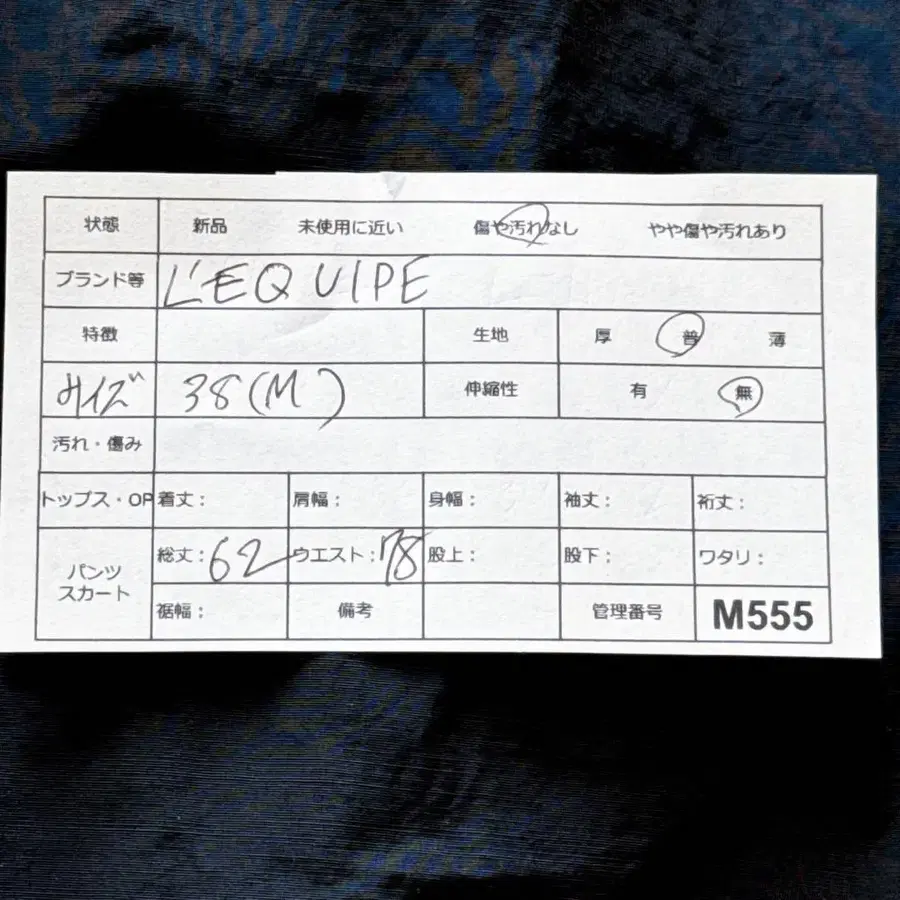 状態 新品 未使用に近い 傷や汚れなし やや傷や汚れあり
ブランド等 L'EQUIPE
特徴 生地 厚 普 薄
サイズ 38(M) 伸縮性 有 無
汚れ・傷み
トップス・OP 着丈: 肩幅: 身幅: 袖丈: 裄丈:
パンツ スカート 総丈:62 ウエスト:78 股上: 股下: ワタリ:
裾幅: 備考 管理番号 M555